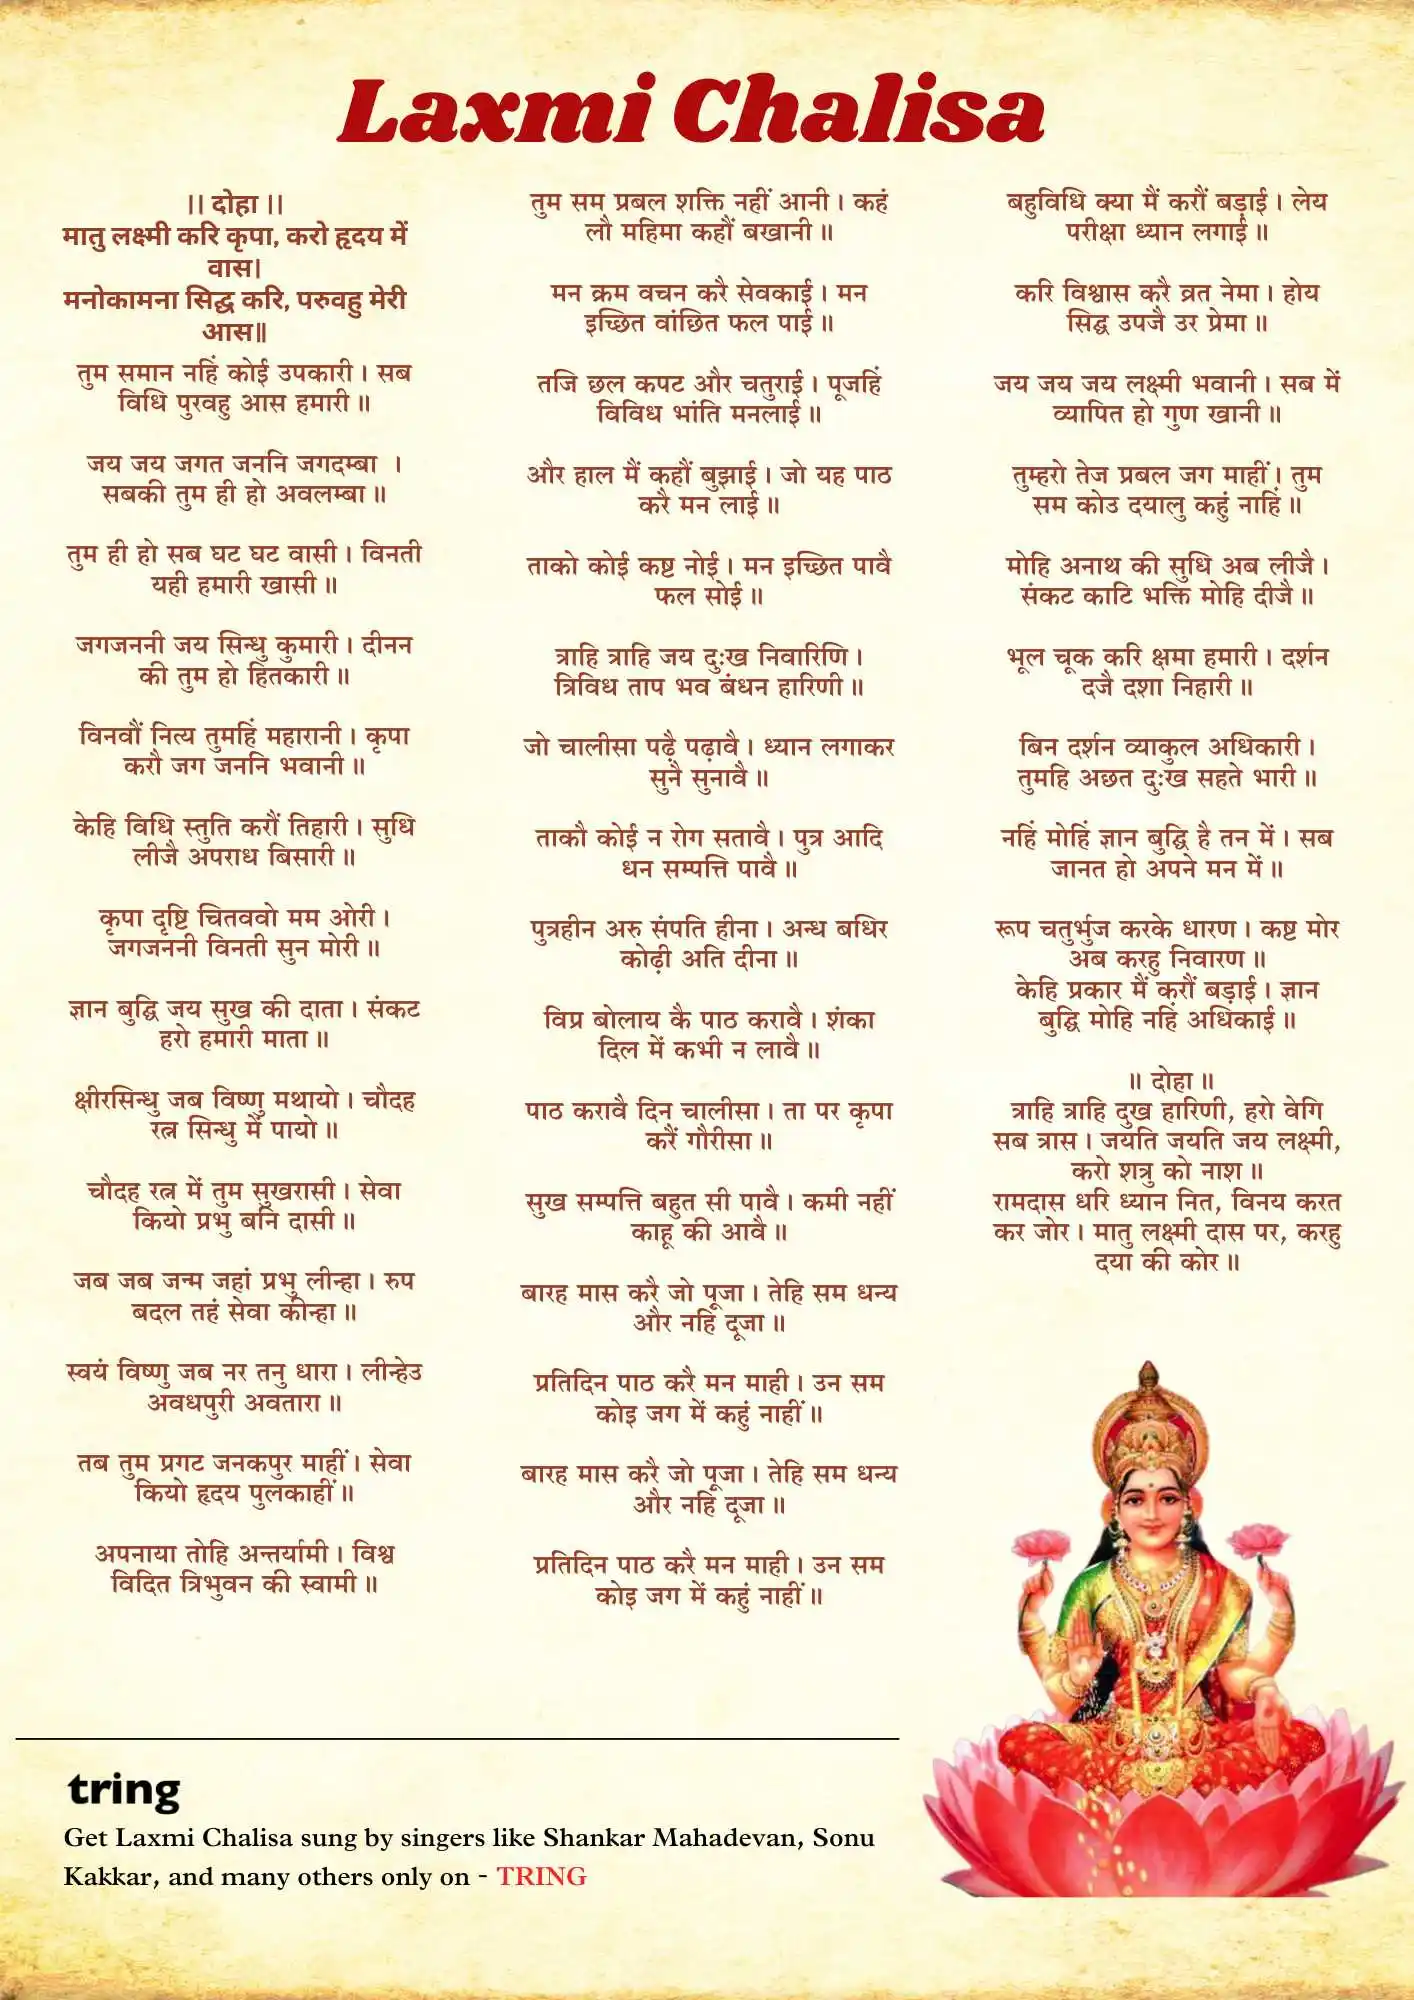 Laxmi Chalisa
।। दोहा ।।
मातु लक्ष्मी करि कृपा, करो हृदय में
वास।
मनोकामना सिद्ध करि, परुवहु मेरी
आस॥
तुम समान नहिं कोई उपकारी । सब
विधि पुरवहु आस हमारी ॥
जय जय जगत जननि जगदम्बा ।
सबकी तुम ही हो अवलम्बा ॥
तुम ही हो सब घट घट वासी । विनती
यही हमारी खासी ॥
जगजननी जय सिन्धु कुमारी । दीनन
की तुम हो हितकारी ॥
विनवौं नित्य तुमहिं महारानी । कृपा
करौ जग जननि भवानी ॥
केहि विधि स्तुति करौं तिहारी । सुधि
लीजै अपराध बिसारी ॥
कृपा दृष्टि चितववो मम ओरी ।
जगजननी विनती सुन मोरी ॥
ज्ञान बुद्धि जय सुख की दाता । संकट
हरो हमारी माता ॥
क्षीरसिन्धु जब विष्णु मथायो । चौदह
रत्न सिन्धु में पायो ॥
चौदह रत्न में तुम सुखरासी । सेवा
कियो प्रभु बनि दासी ॥
जब जब जन्म जहां प्रभु लीन्हा । रुप
बदल तहं सेवा कीन्हा ॥
स्वयं विष्णु जब नर तनु धारा । लीन्हेउ
अवधपुरी अवतारा ॥
तब तुम प्रगट जनकपुर माहीं । सेवा
कियो हृदय पुलकाहीं ॥
अपनाया तोहि अन्तर्यामी । विश्व
विदित त्रिभुवन की स्वामी ॥
तुम सम प्रबल शक्ति नहीं आनी । कहं
लौ महिमा कहौं बखानी ॥
मन क्रम वचन करै सेवकाई । मन
इच्छित वांछित फल पाई ॥
तजि छल कपट और चतुराई । पूजहिं
विविध भांति मनलाई ॥
और हाल मैं कहौं बुझाई । जो यह पाठ
करै मन लाई ॥
ताको कोई कष्ट नोई । मन इच्छित पावै
फल सोई ॥
त्राहि त्राहि जय दुःख निवारिणि ।
त्रिविध ताप भव बंधन हारिणी ॥
जो चालीसा पढ़ै पढ़ावै । ध्यान लगाकर
सुनै सुनावै ॥
ताकौ कोई न रोग सतावै । पुत्र आदि
धन सम्पत्ति पावै ॥
पुत्रहीन अरु संपति हीना । अन्ध बधिर
कोढ़ी अति दीना ॥
विप्र बोलाय कै पाठ करावै । शंका
दिल में कभी न लावै ॥
पाठ करावै दिन चालीसा । ता पर कृपा
करैं गौरीसा ॥
सुख सम्पत्ति बहुत सी पावै । कमी नहीं
काहू की आवै ॥
बारह मास करै जो पूजा । तेहि सम धन्य
और नहिं दूजा ॥
प्रतिदिन पाठ करै मन माही । उन सम
कोइ जग में कहुं नाहीं ॥
बारह मास करै जो पूजा । तेहि सम धन्य
और नहिं दूजा ॥
प्रतिदिन पाठ करै मन माही । उन सम
कोइ जग में कहुं नाहीं ॥
बहुविधि क्या मैं करौं बड़ाई । लेय
परीक्षा ध्यान लगाई ॥
करि विश्वास करै व्रत नेमा । होय
सिद्ध उपजै उर प्रेमा ॥
जय जय जय लक्ष्मी भवानी । सब में
व्यापित हो गुण खानी ॥
तुम्हरो तेज प्रबल जग माहीं । तुम
सम कोउ दयालु कहुं नाहिं ॥
मोहि अनाथ की सुधि अब लीजै ।
संकट काटि भक्ति मोहि दीजै ॥
भूल चूक करि क्षमा हमारी । दर्शन
दजै दशा निहारी ॥
बिन दर्शन व्याकुल अधिकारी ।
तुमहि अछत दुःख सहते भारी ॥
नहिं मोहिं ज्ञान बुद्धि है तन में । सब
जानत हो अपने मन में ॥
रूप चतुर्भुज करके धारण । कष्ट मोर
अब करहु निवारण ॥
केहि प्रकार मैं करौं बड़ाई । ज्ञान
बुद्धि मोहि नहिं अधिकाई ॥
॥ दोहा ॥
त्राहि त्राहि दुख हारिणी, हरो वेगि
सब त्रास । जयति जयति जय लक्ष्मी,
करो शत्रु को नाश ॥
रामदास धरि ध्यान नित, विनय करत
कर जोर । मातु लक्ष्मी दास पर, करहु
दया की कोर ॥
tring
Get Laxmi Chalisa sung by singers like Shankar Mahadevan, Sonu
Kakkar, and many others only on - TRING